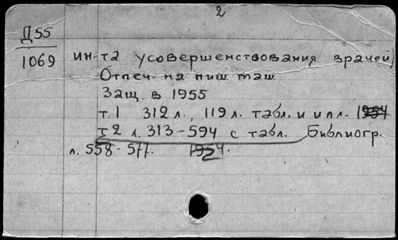 2
Д55
1069
ин-та усовершенствования врачей)
Отпеч. на пиш. маш.
Защ. в 1955
т.1 312 л., 119 л. табл. и илл. 1954
т.2 л. 313-594 с табл. Библиогр.
л. 558-577. 1954.